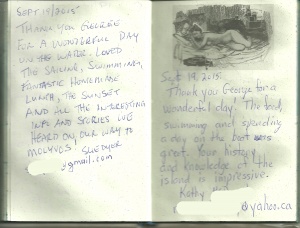 SEPT 19/2015
THANK YOU GEORGE
FOR A WONDERFUL DAY
ON THE WATER. LOVED
THE SAILING, SWIMMING,
FANTASTIC HOMEMADE
LUNCH, THE SUNSET
AND ALL THE INTERESTING
INFO AND STORIES WE
HEARD ON OUR WAY TO
MOLYVOS.
gmail.com
Sept 19, 2015:
Thank you George for a
wonderful day! The food,
swimming and spending
a day on the boat was
great. Your history
and knowledge of the
island is impressive.
Kathy
@yahoo.ca